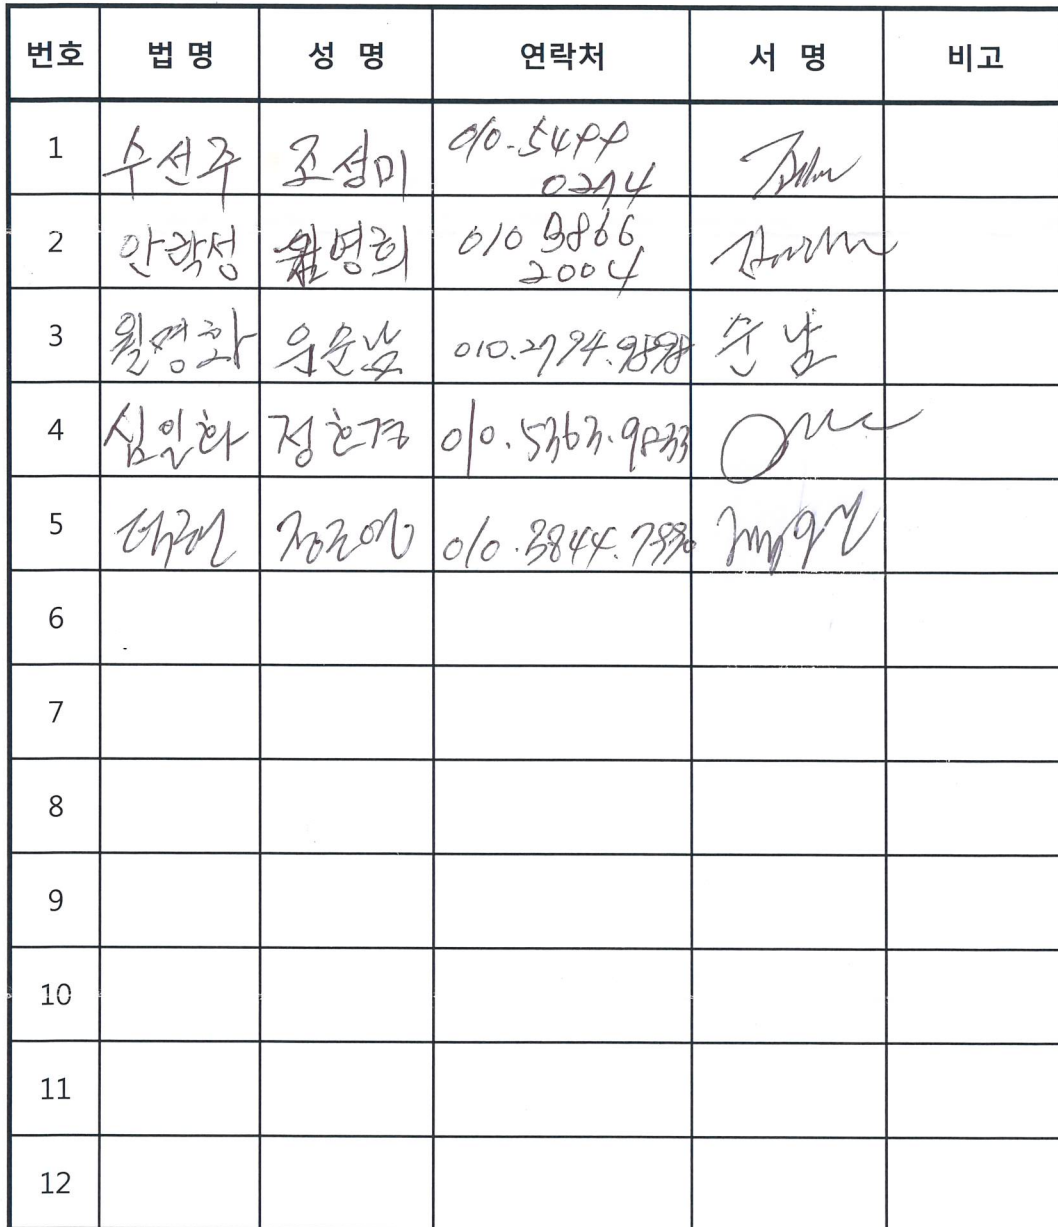 번호 법명 성명 연락처 서명 비고
1 수선주 조성미 010-5499
0274
2 안락성 영희 010 3866
2004
3 월명화 우순남 010.2794.9598 순남
4 심일화 정현경 010.5363.9833
5 010.3844.7330
6
7
8
9
10
11
12